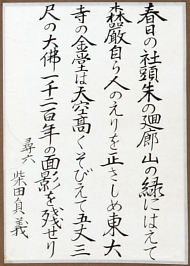 春日の社頭朱の廻廊山の緑にはえて
森厳自ら人のえりを正さしめ東大
寺の金堂は天空高くそびえて五丈三
尺の大佛一千二百年の面影を残せり
尋六 柴田貞義